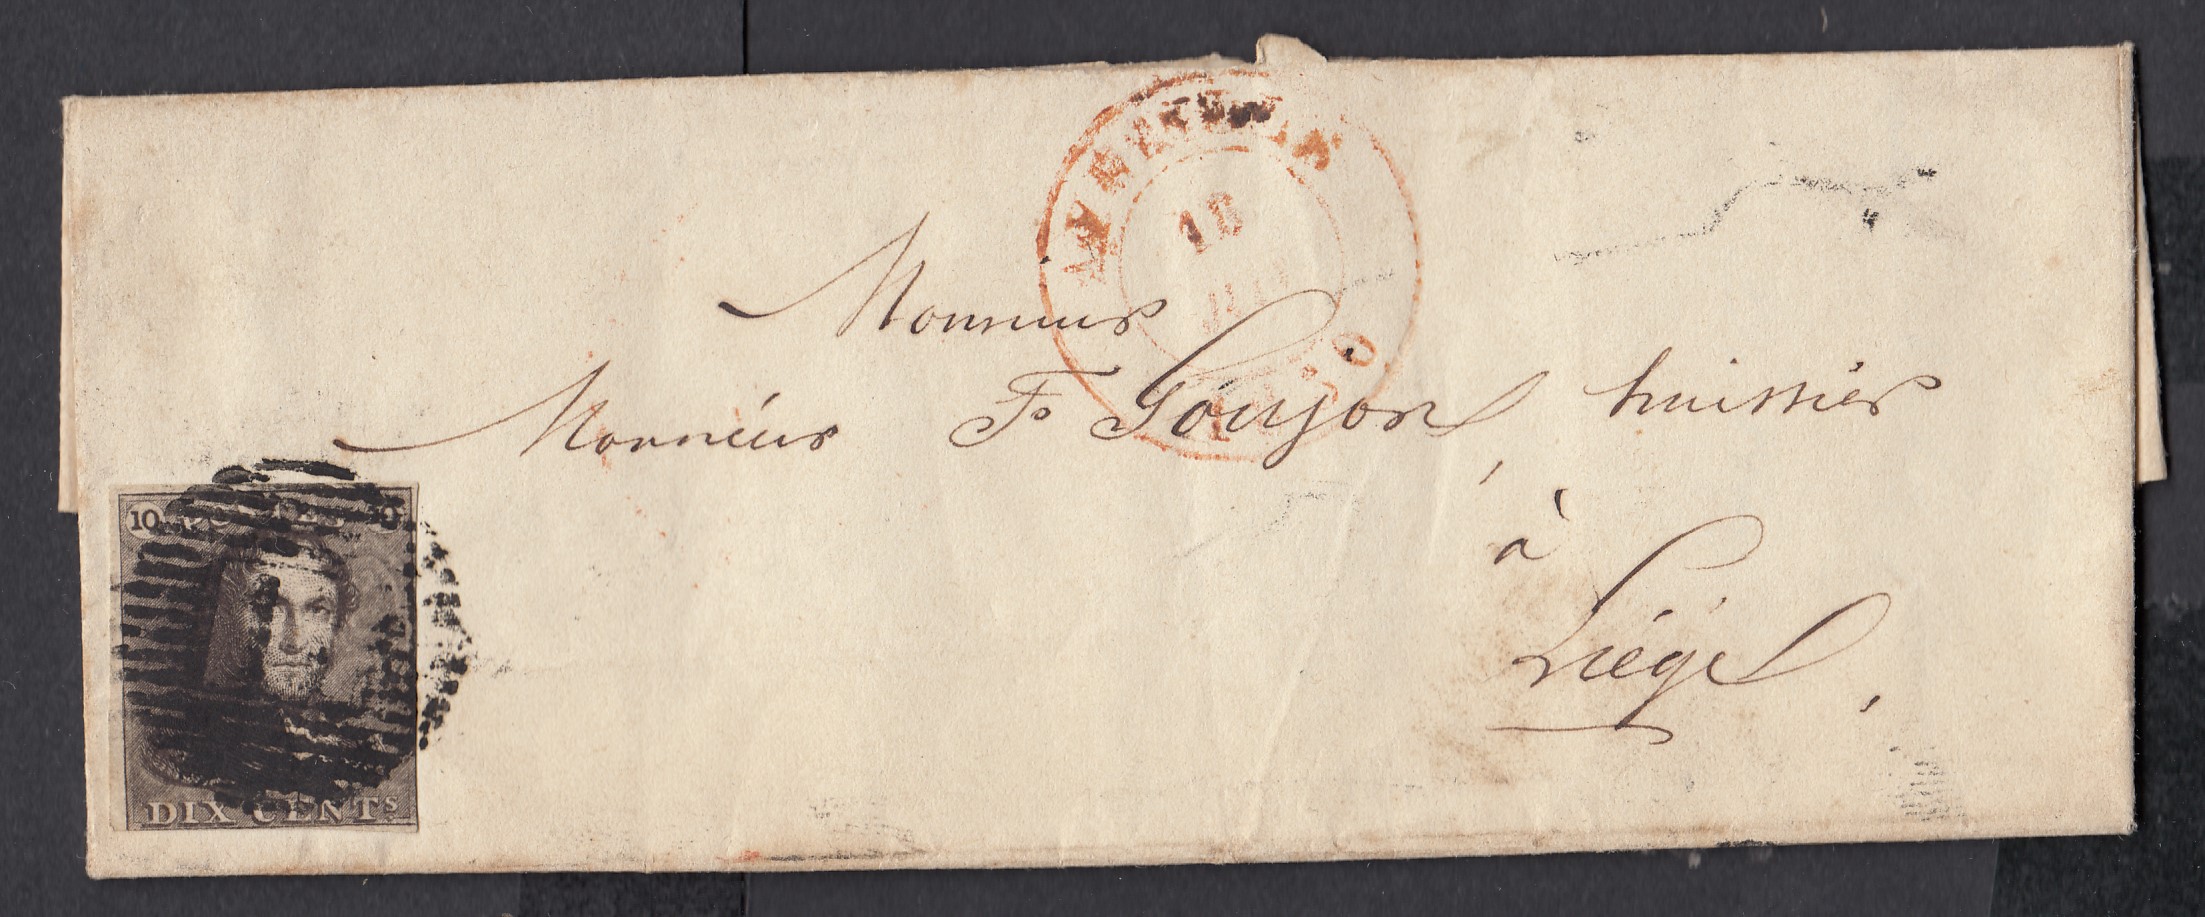 18
1850
Monsieur
Monsieur F Goujon, huissier
à
Liége,
10 POSTES 10
DIX CENTS